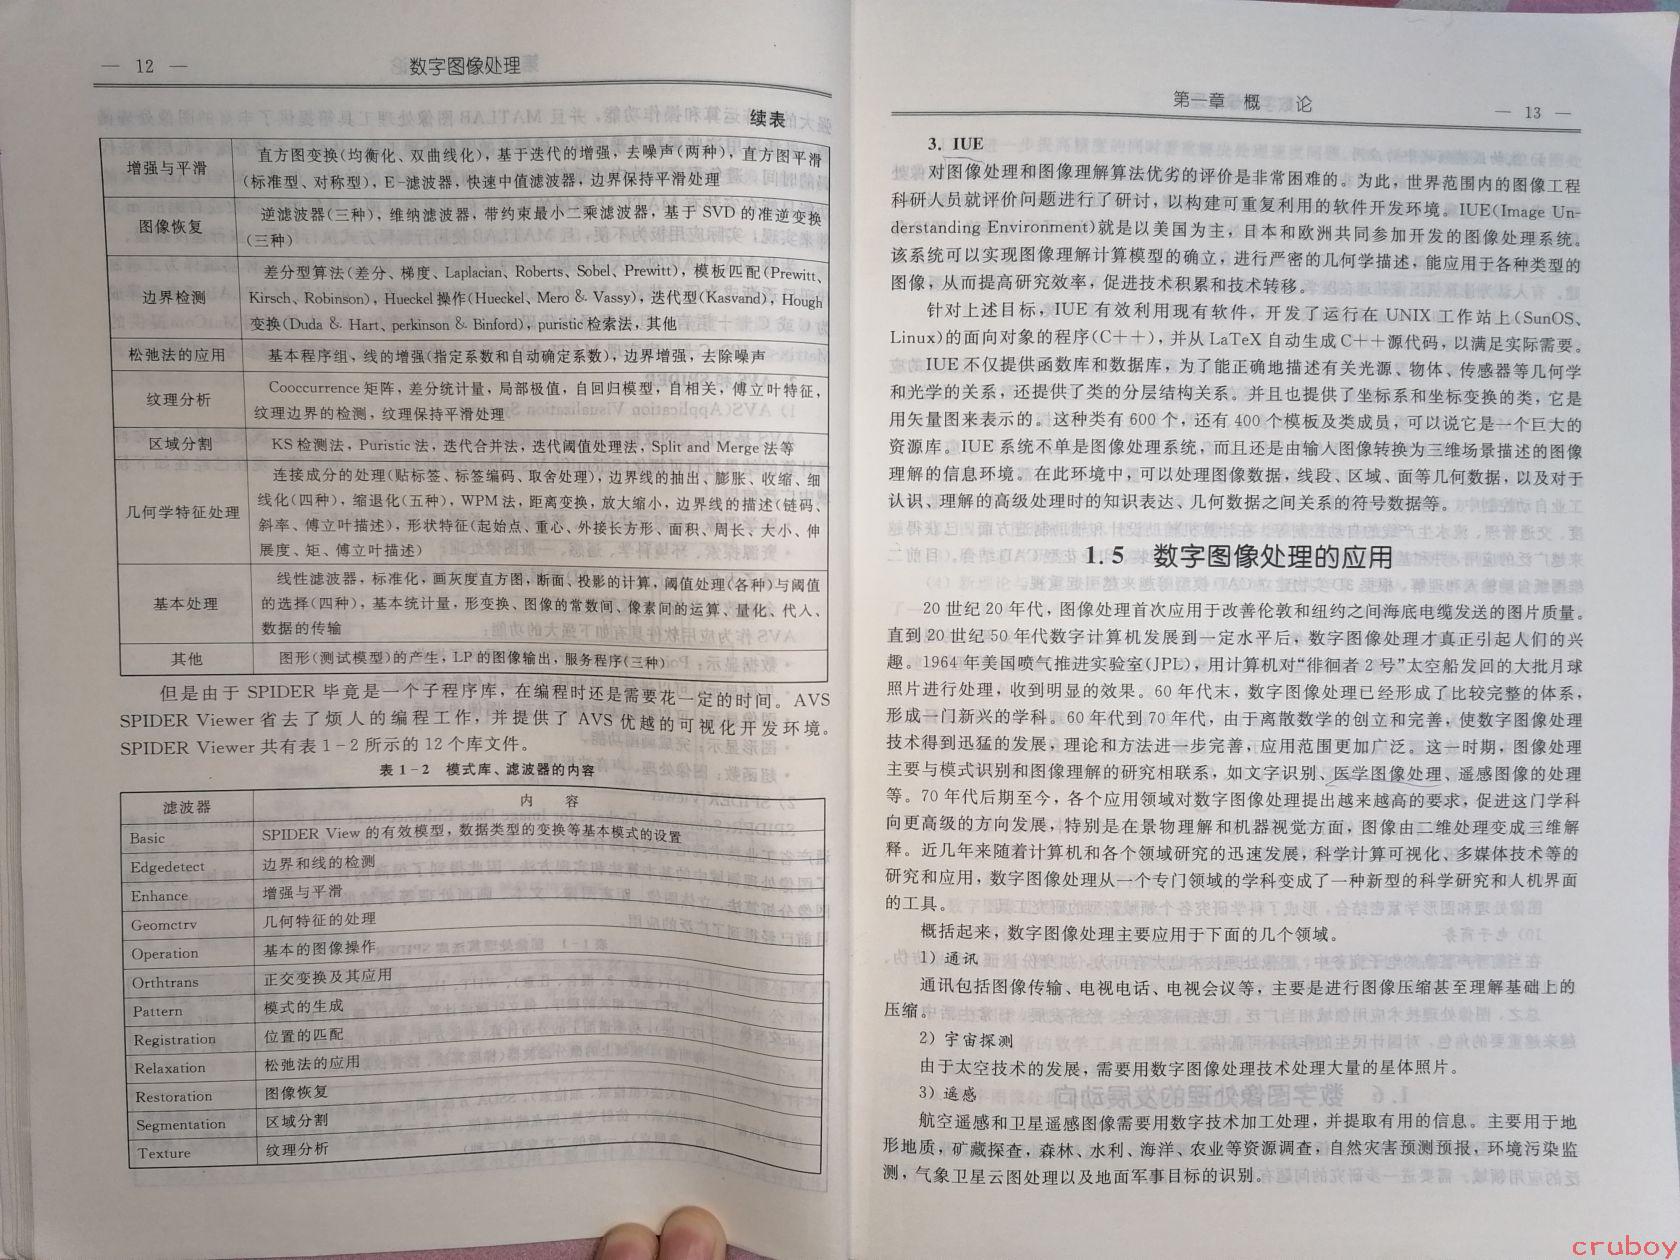 — 12 —
数字图像处理
续表
增强与平滑
直方图变换(均衡化、双曲线化)，基于迭代的增强，去噪声(两种)，直方图平滑
(标准型、对称型)，E-滤波器，快速中值滤波器，边界保持平滑处理
图像恢复
逆滤波器(三种)，维纳滤波器，带约束最小二乘滤波器，基于 SVD 的准逆变换
(三种)
边界检测
差分型算法(差分、梯度、Laplacian、Roberts、Sobel、Prewitt)，模板匹配(Prewitt、
Kirsch、Robinson)，Hueckel 操作(Hueckel、Mero & Vassy)，迭代型(Kasvand)，Hough
变换(Duda & Hart、perkinson & Binford)，puristic 检索法，其他
松弛法的应用
基本程序组，线的增强(指定系数和自动确定系数)，边界增强，去除噪声
纹理分析
Cooccurrence 矩阵，差分统计量，局部极值，自回归模型，自相关，傅立叶特征，
纹理边界的检测，纹理保持平滑处理
区域分割
KS 检测法，Puristic 法，迭代合并法，迭代阈值处理法，Split and Merge 法等
几何学特征处理
连接成分的处理(贴标签、标签编码、取舍处理)，边界线的抽出、膨胀、收缩、细
线化(四种)，缩退化(五种)，WPM 法，距离变换，放大缩小，边界线的描述(链码、
斜率、傅立叶描述)，形状特征(起始点、重心、外接长方形、面积、周长、大小、伸
展度、矩、傅立叶描述)
基本处理
线性滤波器，标准化，画灰度直方图，断面、投影的计算，阈值处理(各种)与阈值
的选择(四种)，基本统计量，形变换、图像的常数间、像素间的运算、量化、代入、
数据的传输
其他
图形(测试模型)的产生，LP 的图像输出，服务程序(三种)
但是由于 SPIDER 毕竟是一个子程序库，在编程时还是需要花一定的时间。AVS
SPIDER Viewer 省去了烦人的编程工作，并提供了 AVS 优越的可视化开发环境。
SPIDER Viewer 共有表 1-2 所示的 12 个库文件。
表 1-2 模式库、滤波器的内容
滤波器 内 容
Basic SPIDER View 的有效模型，数据类型的变换等基本模式的设置
Edgedetect 边界和线的检测
Enhance 增强与平滑
Geometry 几何特征的处理
Operation 基本的图像操作
Orthtrans 正交变换及其应用
Pattern 模式的生成
Registration 位置的匹配
Relaxation 松弛法的应用
Restoration 图像恢复
Segmentation 区域分割
Texture 纹理分析
第一章 概 论
— 13 —
3. IUE
对图像处理和图像理解算法优劣的评价是非常困难的。为此，世界范围内的图像工程
科研人员就评价问题进行了研讨，以构建可重复利用的软件开发环境。IUE(Image Un-
derstanding Environment)就是以美国为主，日本和欧洲共同参加开发的图像处理系统。
该系统可以实现图像理解计算模型的确立，进行严密的几何学描述，能应用于各种类型的
图像，从而提高研究效率，促进技术积累和技术转移。
针对上述目标，IUE 有效利用现有软件，开发了运行在 UNIX 工作站上(SunOS、
Linux)的面向对象的程序(C++)，并从 LaTeX 自动生成 C++源代码，以满足实际需要。
IUE 不仅提供函数库和数据库，为了能正确地描述有关光源、物体、传感器等几何学
和光学的关系，还提供了类的分层结构关系。并且也提供了坐标系和坐标变换的类，它是
用矢量图来表示的。这种类有 600 个，还有 400 个模板及类成员，可以说它是一个巨大的
资源库。IUE 系统不单是图像处理系统，而且还是由输入图像转换为三维场景描述的图像
理解的信息环境。在此环境中，可以处理图像数据，线段、区域、面等几何数据，以及对于
认识、理解的高级处理时的知识表达、几何数据之间关系的符号数据等。
1.5 数字图像处理的应用
20 世纪 20 年代，图像处理首次应用于改善伦敦和纽约之间海底电缆发送的图片质量。
直到 20 世纪 50 年代数字计算机发展到一定水平后，数字图像处理才真正引起人们的兴
趣。1964 年美国喷气推进实验室(JPL)，用计算机对“徘徊者 2 号”太空船发回的大批月球
照片进行处理，收到明显的效果。60 年代末，数字图像处理已经形成了比较完整的体系，
形成一门新兴的学科。60 年代到 70 年代，由于离散数学的创立和完善，使数字图像处理
技术得到迅猛的发展，理论和方法进一步完善，应用范围更加广泛。这一时期，图像处理
主要与模式识别和图像理解的研究相联系，如文字识别、医学图像处理、遥感图像的处理
等。70 年代后期至今，各个应用领域对数字图像处理提出越来越高的要求，促进这门学科
向更高级的方向发展，特别是在景物理解和机器视觉方面，图像由二维处理变成三维解
释。近几年来随着计算机和各个领域研究的迅速发展，科学计算可视化、多媒体技术等的
研究和应用，数字图像处理从一个专门领域的学科变成了一种新型的科学研究和人机界面
的工具。
概括起来，数字图像处理主要应用于下面的几个领域。
1) 通讯
通讯包括图像传输、电视电话、电视会议等，主要是进行图像压缩甚至理解基础上的
压缩。
2) 宇宙探测
由于太空技术的发展，需要用数字图像处理技术处理大量的星体照片。
3) 遥感
航空遥感和卫星遥感图像需要用数字技术加工处理，并提取有用的信息。主要用于地
形地质，矿藏探查，森林、水利、海洋、农业等资源调查，自然灾害预测预报，环境污染监
测，气象卫星云图处理以及地面军事目标的识别。
cruboy